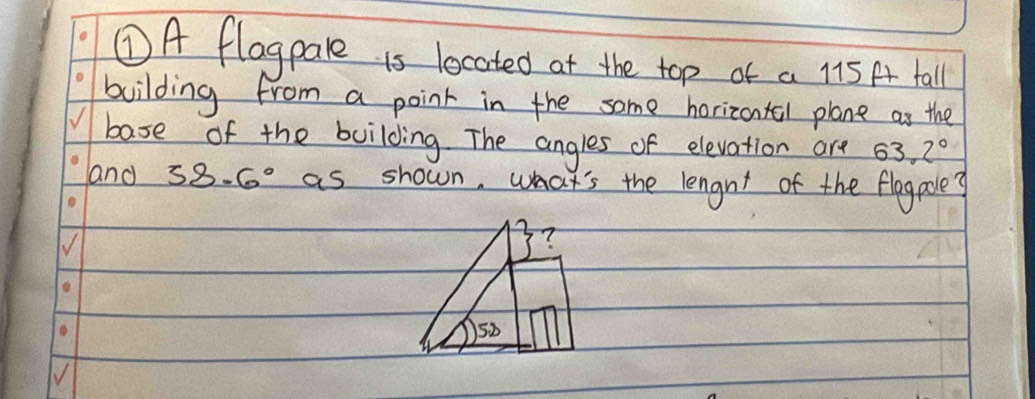 ① A flagpale is located at the top of a 115 ft tall
building from a point in the same horizontal plane as the
base of the building. The angles of elevation are 63.2°
and 58.6° as shown. what's the lengnt of the flagpole?
?
58